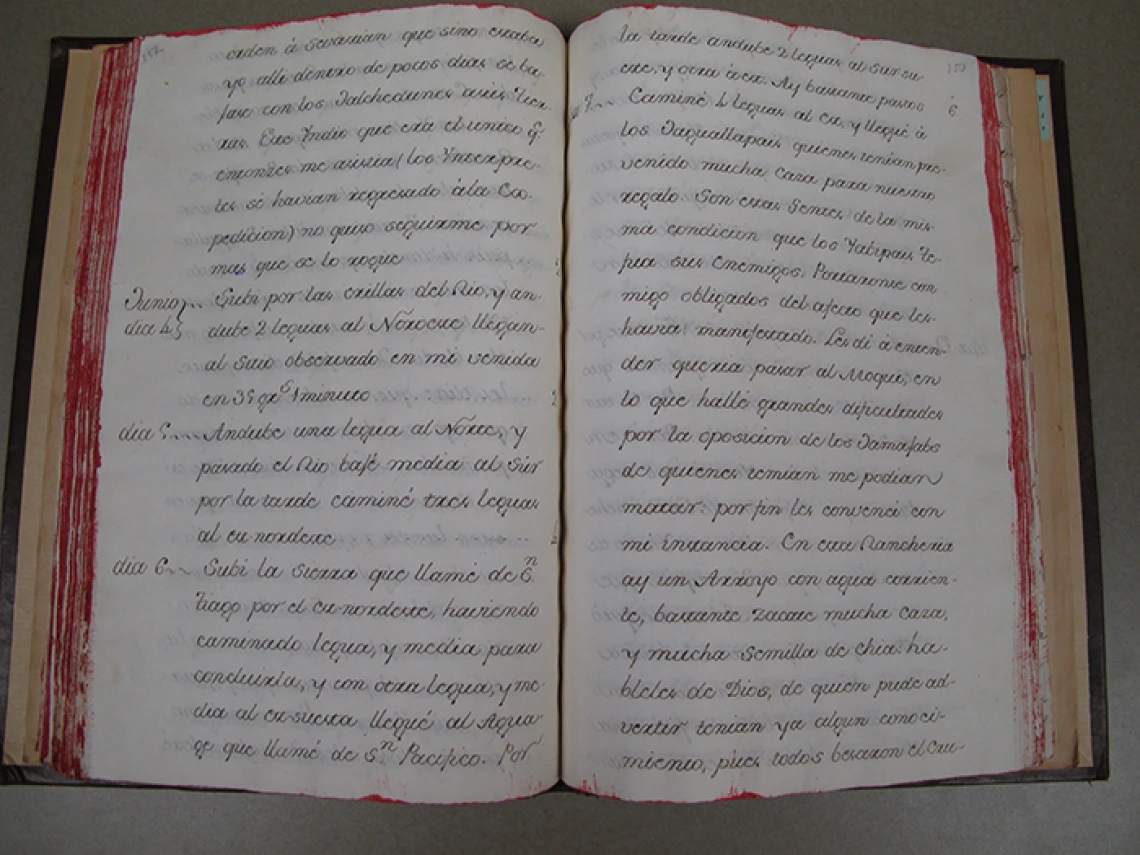 157
orden á Sevarian que sino estaba
yo alli dentro de pocos dias se ba-
jase con los Jalchedunes a sus Tier-
ras. Este Yndio que era el unico q.e
entonzes me asistia (los Ynterpre-
tes se havian regresado á la Es-
pedicion) no quiso seguirme por
mas que se lo rogue
Junio
dia 4 Subi por las orillas del Rio, y an-
dube 2 leguas al Noroeste llegan-
al Sitio observado en mi venida
en 35 gr.s 1 minuto
dia 5.... Andube una legua al Norte, y
pasado el Rio bajé media al Sur
por la tarde caminé tres leguas
al es nordeste
dia 6... Subi la Sierra que llamé de S.n
tiago por el es-nordeste, haviendo
caminado legua, y media para
concluirla, y con otra legua, y me-
dia al es-sueste llegué al Agua-
ge que llamé de S.n Pacifico. Por
153
la tarde andube 2 leguas al Sur su
este, y otra Ay bastante pastos
Caminé 4 leguas al es, y llegué á
los Jaguallapais quienes tenian pre-
venido mucha caza para nuestro
regalo. Son estas Gentes de la mis-
ma condicion que los Yabipais Te-
jua sus enemigos. Portaronse con-
migo obligados del afecto que les
havia manifestado. Les di á enten-
der queria pasar al Moqui, en
lo que hallé grandes dificultades
por la oposicion de los Jamajabs
de quienes temian me podian
matar: por fin les convenci con
mi instancia. En esta Rancheria
ay un Arroyo con agua corrien-
te, bastante zacate mucha caza,
y mucha Semilla de chia: ha-
bleles de Dios, de quien pude ad-
vertir tenian ya algun conoci-
miento, pues todos besaron el Cru-